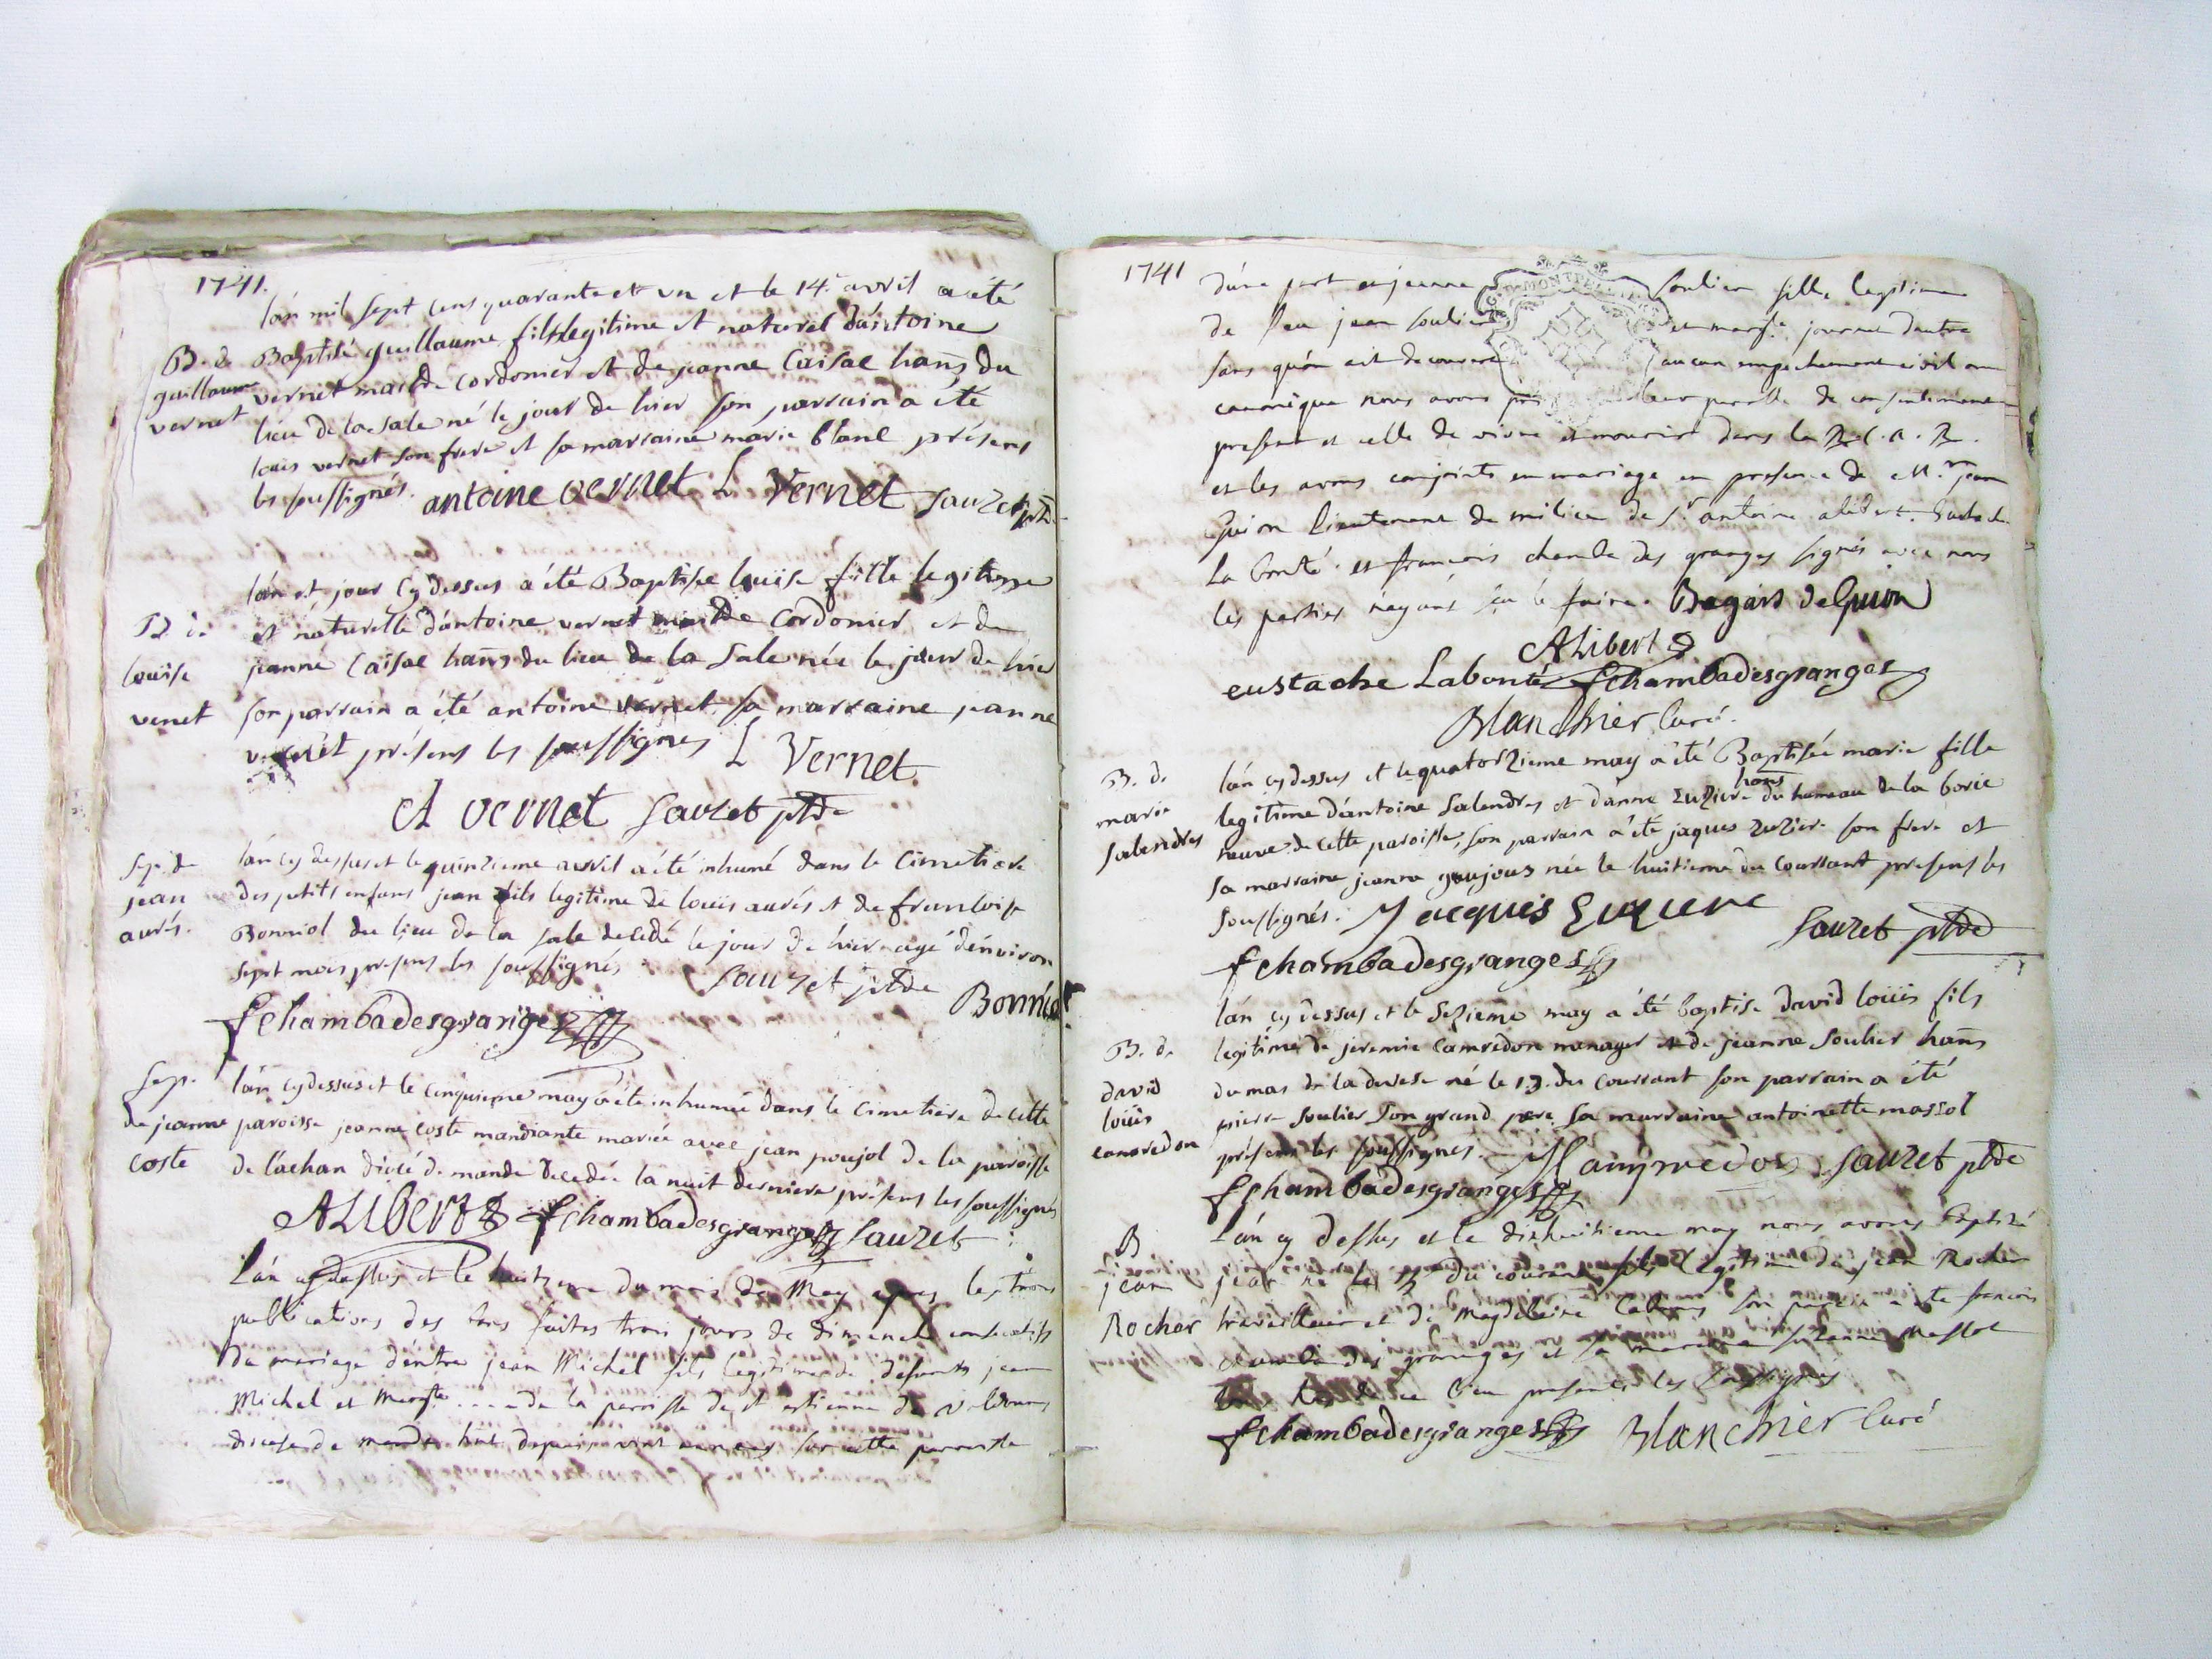 1741.
lán mil sept cens quarante et un et le 14e avril a été
B. de Baptisé guillaume fils legitime et naturel dántoine
guillaume vernet maitde Cordonier et de jeanne Caisac hans du
vernet lieu de la sale né le jour de hier son parrain a été
louis vernet son frere et sa marraine marie blanc présens
les soussignés. antoine vernet L Vernet Sauzet ptde
lán et jour cy dessus a été Baptisée louise fille legitime
B. de et náturelle dántoine vernet maitde Cordonier et de
louise jeanne Caisac hans du lieu de la Sale née le jour de hier
venet son parrain a été antoine vernet sa marraine jeanne
vernet présens les soussignes L Vernet
A vernet Sauzet ptde
Sep. de lán cy dessus et le quinzieme avril a été inhumé dans le Cimetiere
jean des petits enfans jean fils legitime de louis aurés et de francoise
aurés. Bonniol du lieu de la sale decedé le jour de hier agé dénviron
sept mois présens les soussignés Sauzet ptde Bonniol
fchambadesgranges
Sep. lán cy dessus et le cinquieme may a été inhumée dans le cimetiere de cette
de jeanne paroisse jeanne coste mandiante mariée avec jean poujol de la paroisse
coste de lachan diocé de mande decedée la nuit derniere présens les soussignés
ALibert fchambadesgranges Sauzet
Lán cy dessus et le huitieme du mois de May apres les trois
publications des bans faites trois jours de dimanche consecutifs
de mariage déntre jean Michel fils legitime de defunts jean
Michel et Margte .... de la paroisse de st estienne de valdonnes
diocese de mende hab. depuis vint années sur cette parroisse
1741
dúne part et jeanne Soulier fille legitime
de feu jean soulier et margte journet dautre
sans quón ait decouvert aucun empechement civil ou
canonique nous avons pris leur parolle de consentement
present et celle de vivre et mourir dans la R. C. A. R.
et les avons conjoints en mariage en presence de Mr. jean
Guion lieutenant de milice de sr antoine alibert Eustache
La bonté et francois chamba des granges signés avec nous
les parties náyant sçu le faire. Bagars de Guion
ALibert
eustache Labonté fchambadesgranges
Blanchier Curé.
B. de lán cy dessus et le quatorzieme may a été Baptisée marie fille
marie legitime dántoine Salendres et dánne Euziere hans du hameau de la borie
Salendres neuve de cette paroisse, son parrain a été jaques Euziere son frere et
sa marraine jeanne goujous née le huitieme du Courrant presens les
Soussignés. Jacques Euziere Sauzet ptde
fchambadesgranges
lán cy dessus et le sezieme may a été baptisé david louis fils
B. de legitime de jeremie Camredon menager et de jeanne Soulier hans
david du mas de la devese né le 13. du Courrant son parrain a été
louis pierre Soulier son grand pere sa marraine antoinette massol
camredon présens les soussignes. Sauzet ptde
fchambadesgranges
B Lán cy dessus et le dixhuitieme may nous avons baptisé
jean jean né le du courant fils legitime de jean Rocher
Rocher travailleur et de Magdelaine son parrain a été francois
chamba des granges et sa marraine suzanne Massot
de ce lieu presents les soussignés
fchambadesgranges Blanchier Curé